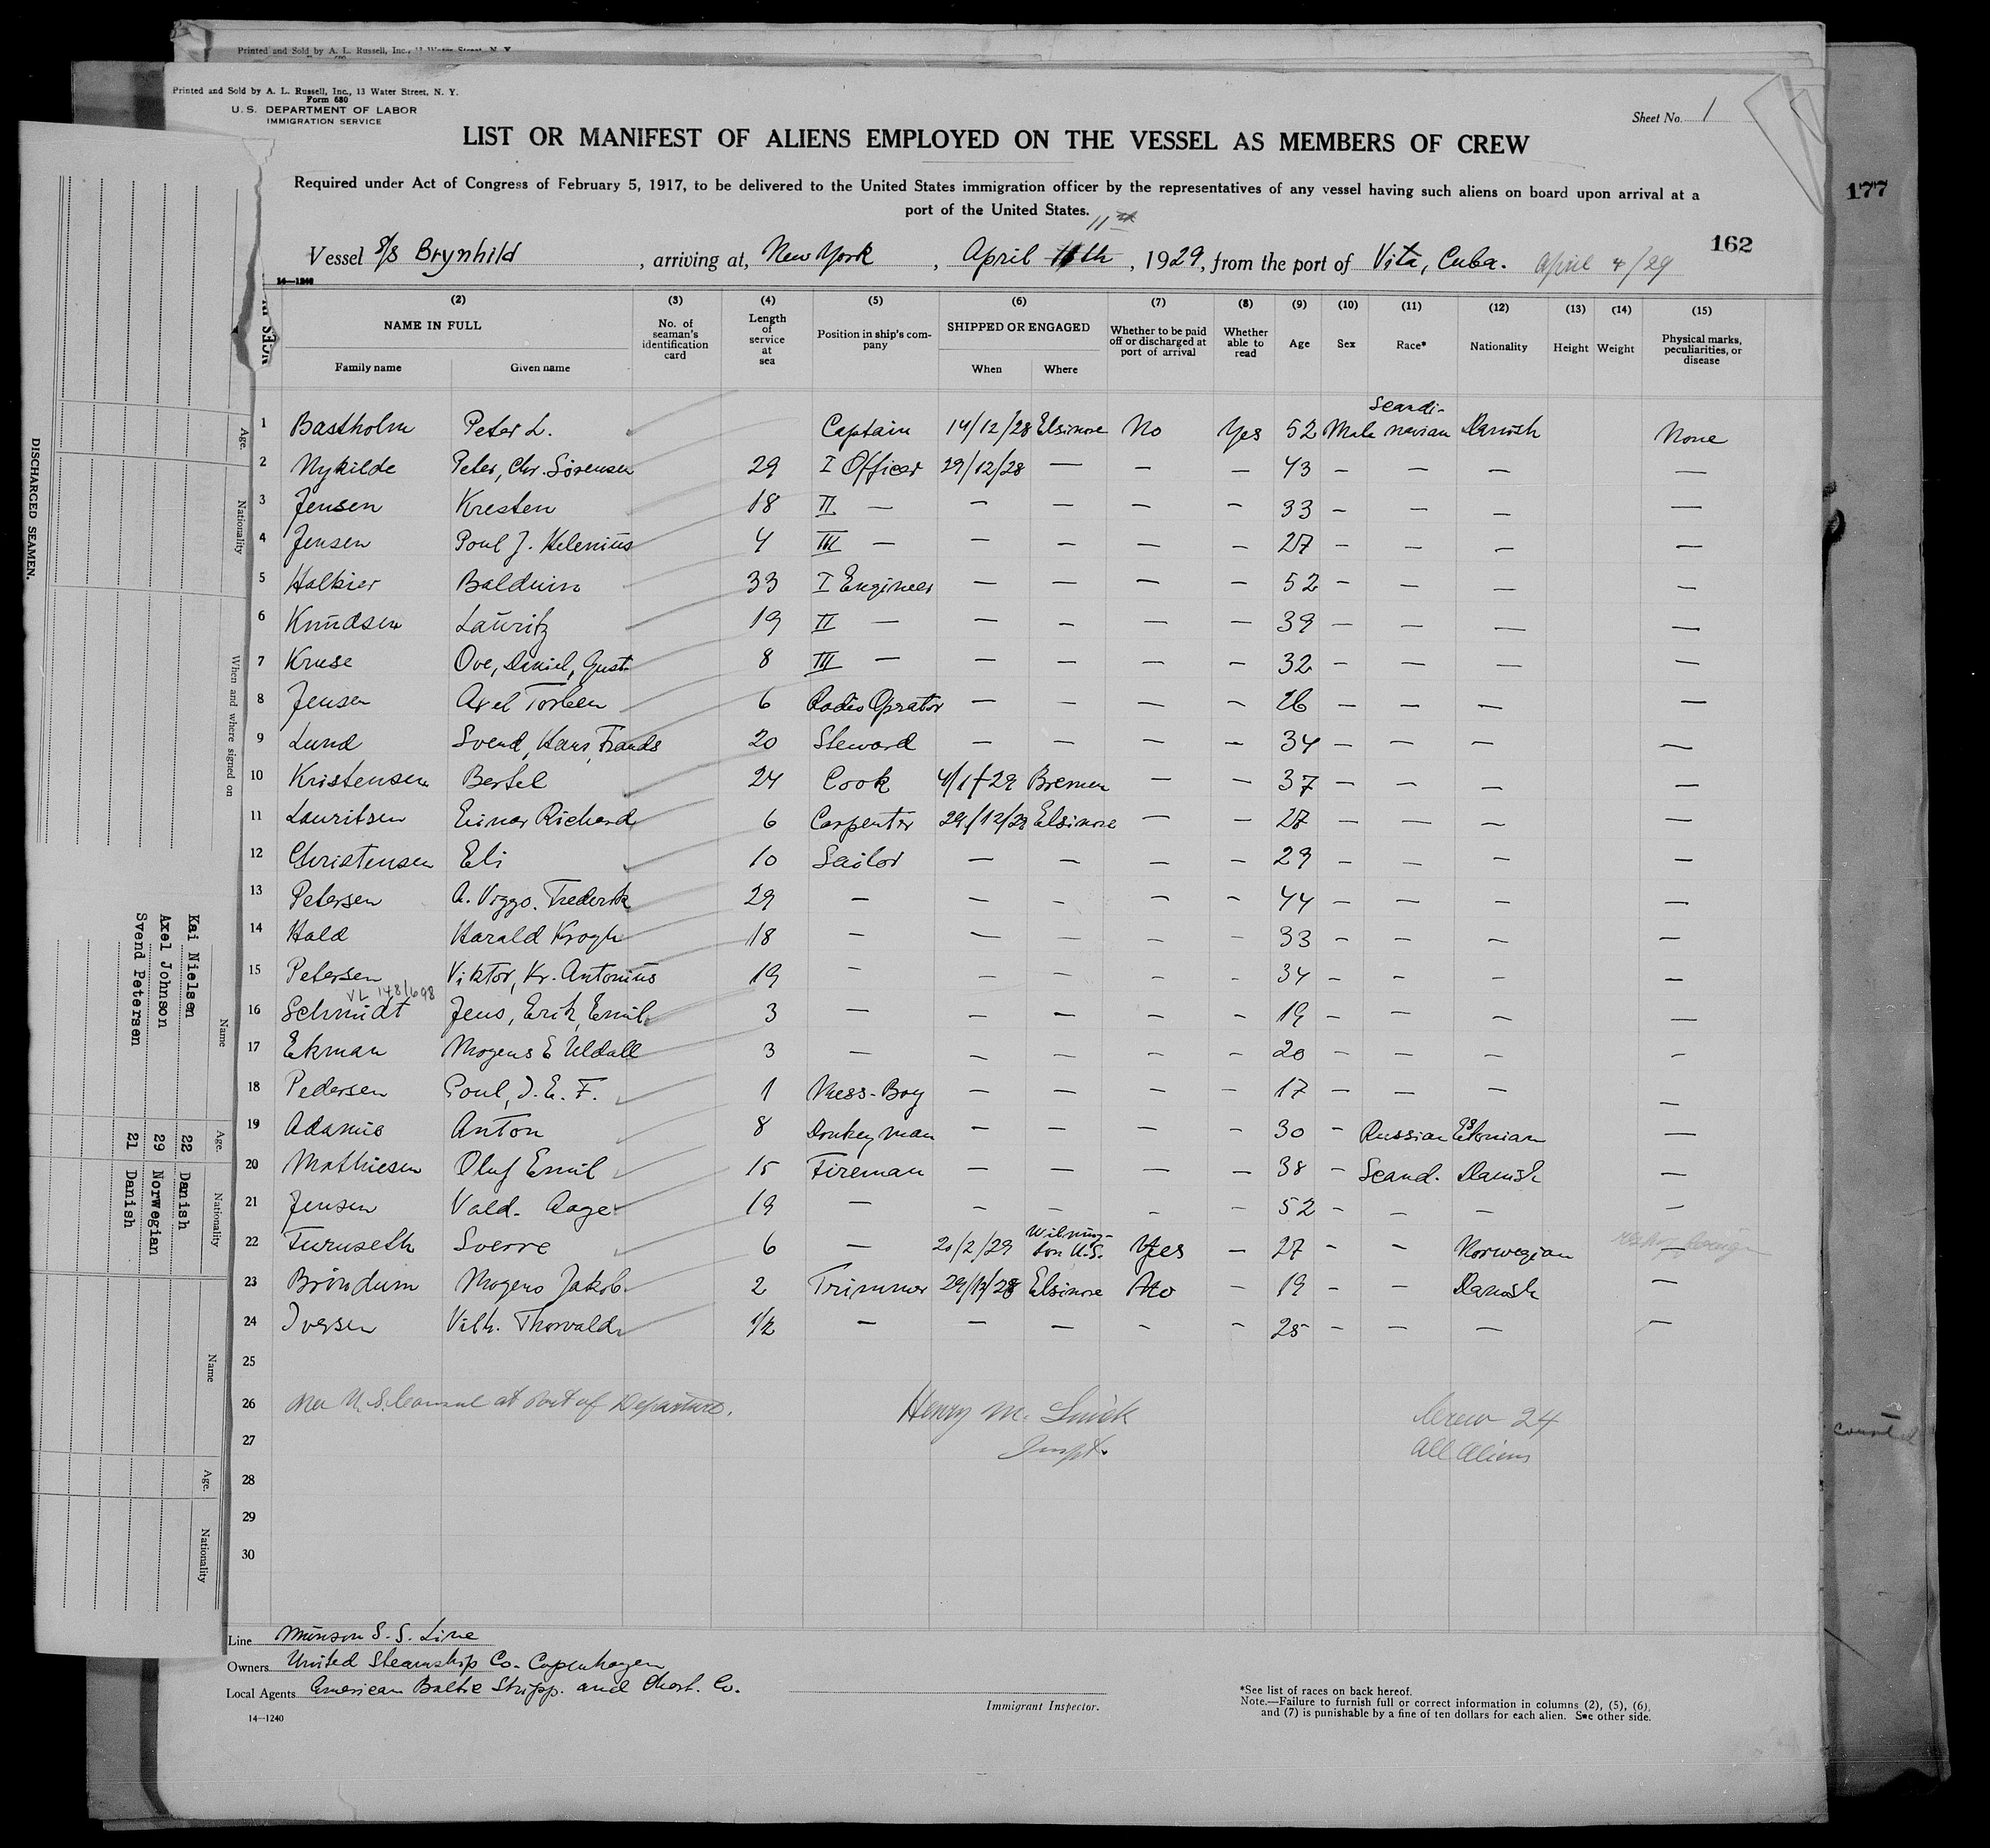 Printed and Sold by A. L. Russell, Inc., 13 Water Street, N. Y.
Printed and Sold by A. L. Russell, Inc., 13 Water Street, N. Y.
Form 680
U. S. DEPARTMENT OF LABOR
IMMIGRATION SERVICE
Sheet No. 1
LIST OR MANIFEST OF ALIENS EMPLOYED ON THE VESSEL AS MEMBERS OF CREW
177
Required under Act of Congress of February 5, 1917, to be delivered to the United States immigration officer by the representatives of any vessel having such aliens on board upon arrival at a
port of the United States.
11th
162
Vessel S/S Brynhild, arriving at, New York, April 11th, 1929, from the port of Vita, Cuba. April 4/29
14—1240
(2) (3) (4) (5) (6) (7) (8) (9) (10) (11) (12) (13) (14) (15)
NAME IN FULL
Family name Given name
No. of seaman's identification card
Length of service at sea
Position in ship's company
SHIPPED OR ENGAGED
When Where
Whether to be paid off or discharged at port of arrival
Whether able to read
Age
Sex
Race*
Nationality
Height
Weight
Physical marks, peculiarities, or disease
1 Bastholm Peter L. Captain 14/12/28 Elsinore No Yes 52 Male Scandinavian Danish None
2 Nykilde Peter, Chr. Sørensen 29 I Officer 29/12/28 — — — 43 — — — —
3 Jensen Kresten 18 II — — — — — 33 — — — —
4 Jensen Poul J. Helenius 4 III — — — — — 27 — — — —
5 Halkier Balduin 33 I Engineer — — — — 52 — — — —
6 Knudsen Lauritz 19 II — — — — — 39 — — — —
7 Kruse Ove, Daniel, Gust. 8 III — — — — — 32 — — — —
8 Jensen Axel Torben 6 Radio Oprator — — — — 26 — — — —
9 Lund Svend, Hans, Frands 20 Steward — — — — 34 — — — —
10 Kristensen Bertel 24 Cook 4/1-29 Bremen — — 37 — — — —
11 Lauritsen Einar Richard 6 Carpenter 29/12/28 Elsinore — — 27 — — — —
12 Christensen Eli 10 Sailor — — — — 29 — — — —
13 Petersen A. Viggo. Frederik 29 — — — — — 44 — — — —
14 Hald Harald Krogh 18 — — — — — 33 — — — —
15 Petersen Viktor, Kr. Antonius 19 — — — — — 34 — — — —
VL 148/698
16 Schmidt Jens, Erik, Emil 3 — — — — — 19 — — — —
17 Ekman Mogens E Uldall 3 — — — — — 20 — — — —
18 Pedersen Poul, J. E. F. 1 Mess-Boy — — — — 17 — — — —
19 Adamis Anton 8 Donkeyman — — — — 30 — Russian Estonian —
20 Mathiesen Oluf Emil 15 Fireman — — — — 38 — Scand. Danish —
21 Jensen Vald. Aage 19 — — — — — 52 — — — —
22 Furuseth Sverre 6 — 20/2/29 Wilmington U.S. Yes — 27 — — Norwegian —
23 Bröndum Mogens Jakob 2 Trimmer 29/12/28 Elsinore No — 19 — — Danish —
24 Iversen Vilh. Thorvald 1/2 — — — — — 25 — — — —
25
26 No U.S. Consul at Port of Departure. Henry M. Crew 24
27 Inspt. All Aliens
28
29
30
Line Munson S. S. Line
Owners United Steamship Co. Copenhagen
Local Agents American Baltic Shipp. and Chart. Co.
Immigrant Inspector.
*See list of races on back hereof.
Note.—Failure to furnish full or correct information in columns (2), (5), (6),
and (7) is punishable by a fine of ten dollars for each alien. See other side.
14—1240
DISCHARGED SEAMEN.
Age. Nationality When and where signed on
Name Age. Nationality
Kai Nielsen 22 Danish
Axel Johnson 29 Norwegian
Svend Petersen 21 Danish
Name Age. Nationality